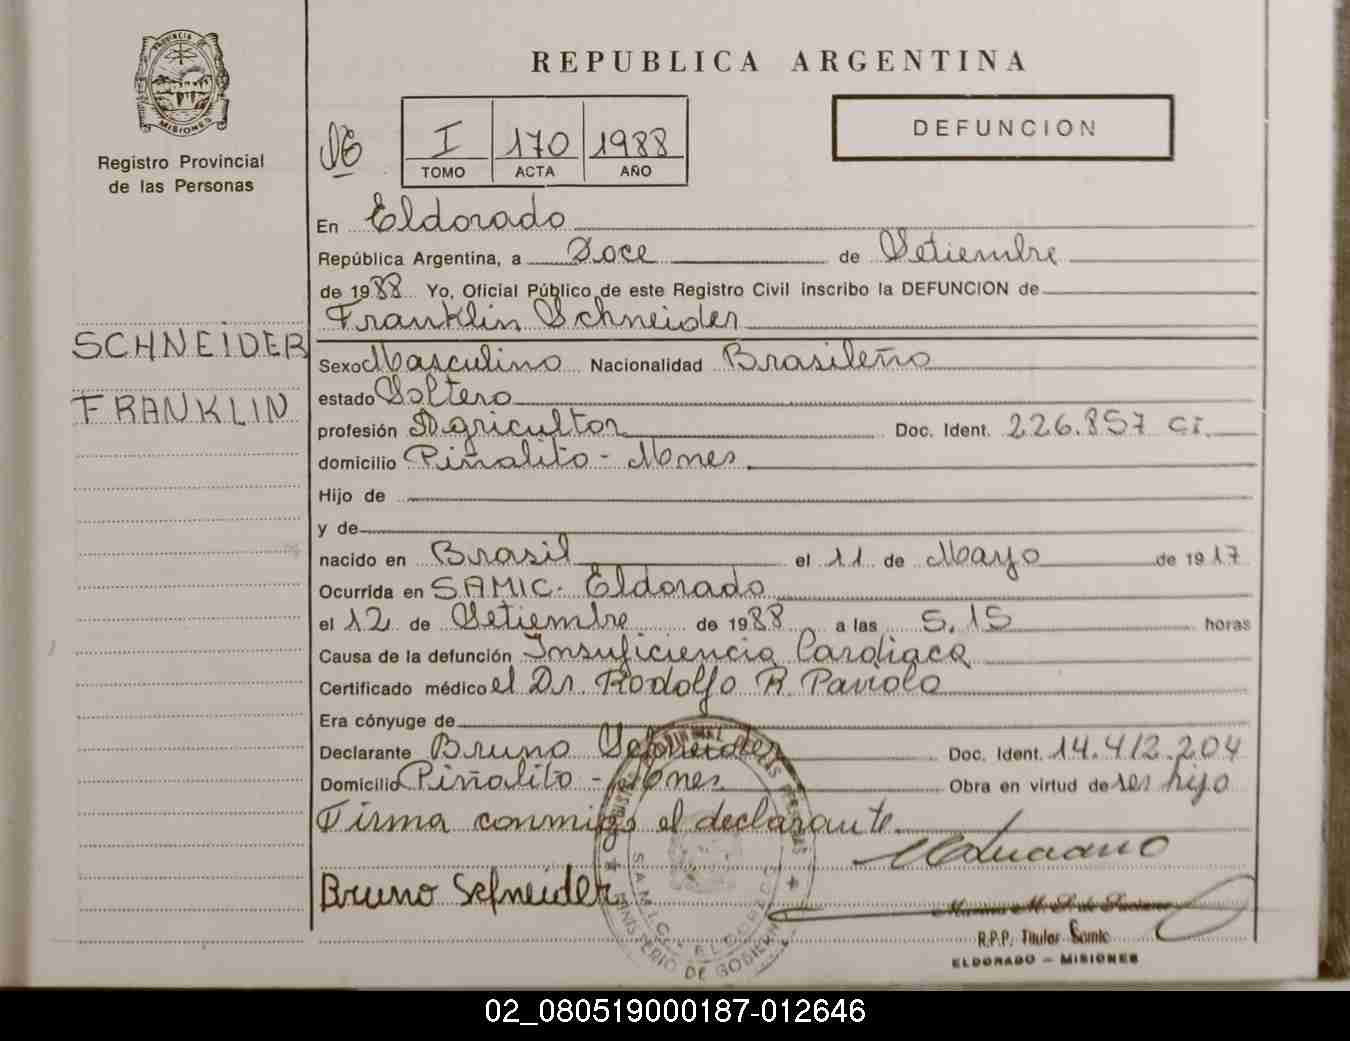 REPUBLICA ARGENTINA
PROVINCIA DE
MISIONES
Registro Provincial
de las Personas
I 170 1988
TOMO ACTA AÑO
DEFUNCION
En Eldorado
República Argentina, a Doce de Setiembre
de 1988 Yo, Oficial Público de este Registro Civil inscribo la DEFUNCION de
Franklin Schneider
SCHNEIDER
FRANKLIN
Sexo Masculino Nacionalidad Brasileño
estado Soltero
profesión Agricultor Doc. Ident. 226.857 Ci.
domicilio Piñalito - Mnes.
Hijo de
y de
nacido en Brasil el 11 de Mayo de 1917
Ocurrida en SAMIC. Eldorado
el 12 de Setiembre de 1988 a las 5.15 horas
Causa de la defunción Insuficiencia Cardiaca
Certificado médico el Dr. Rodolfo R.
Era cónyuge de
Declarante Bruno Schneider Doc. Ident. 14.412.204
Domicilio Piñalito - Mnes. Obra en virtud de ser hijo
Firma conmigo el declarante.
Bruno Schneider
S.A.M.I.C. ELDORADO
MINISTERIO DE GOBIERNO
R.P.P. Titular Samic
ELDORADO - MISIONES
02_080519000187-012646